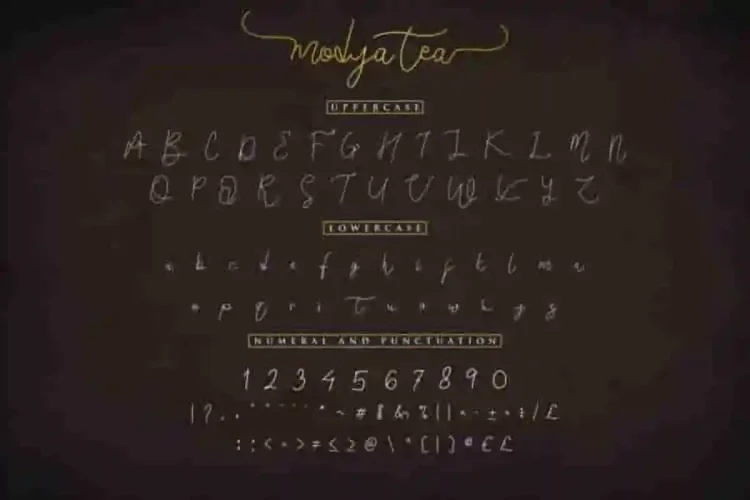 modya Tea
UPPERCASE
A B C D E F G H I J K L M N
O P Q R S T U V W X Y Z
LOWERCASE
a b c d e f g h i j k l m n
o p q r s t u v w x y z
NUMERAL AND PUNCTUATION
1 2 3 4 5 6 7 8 9 0
: ; < = > ≠ ≤ ≥ @ \ ^ [ | ] © € £